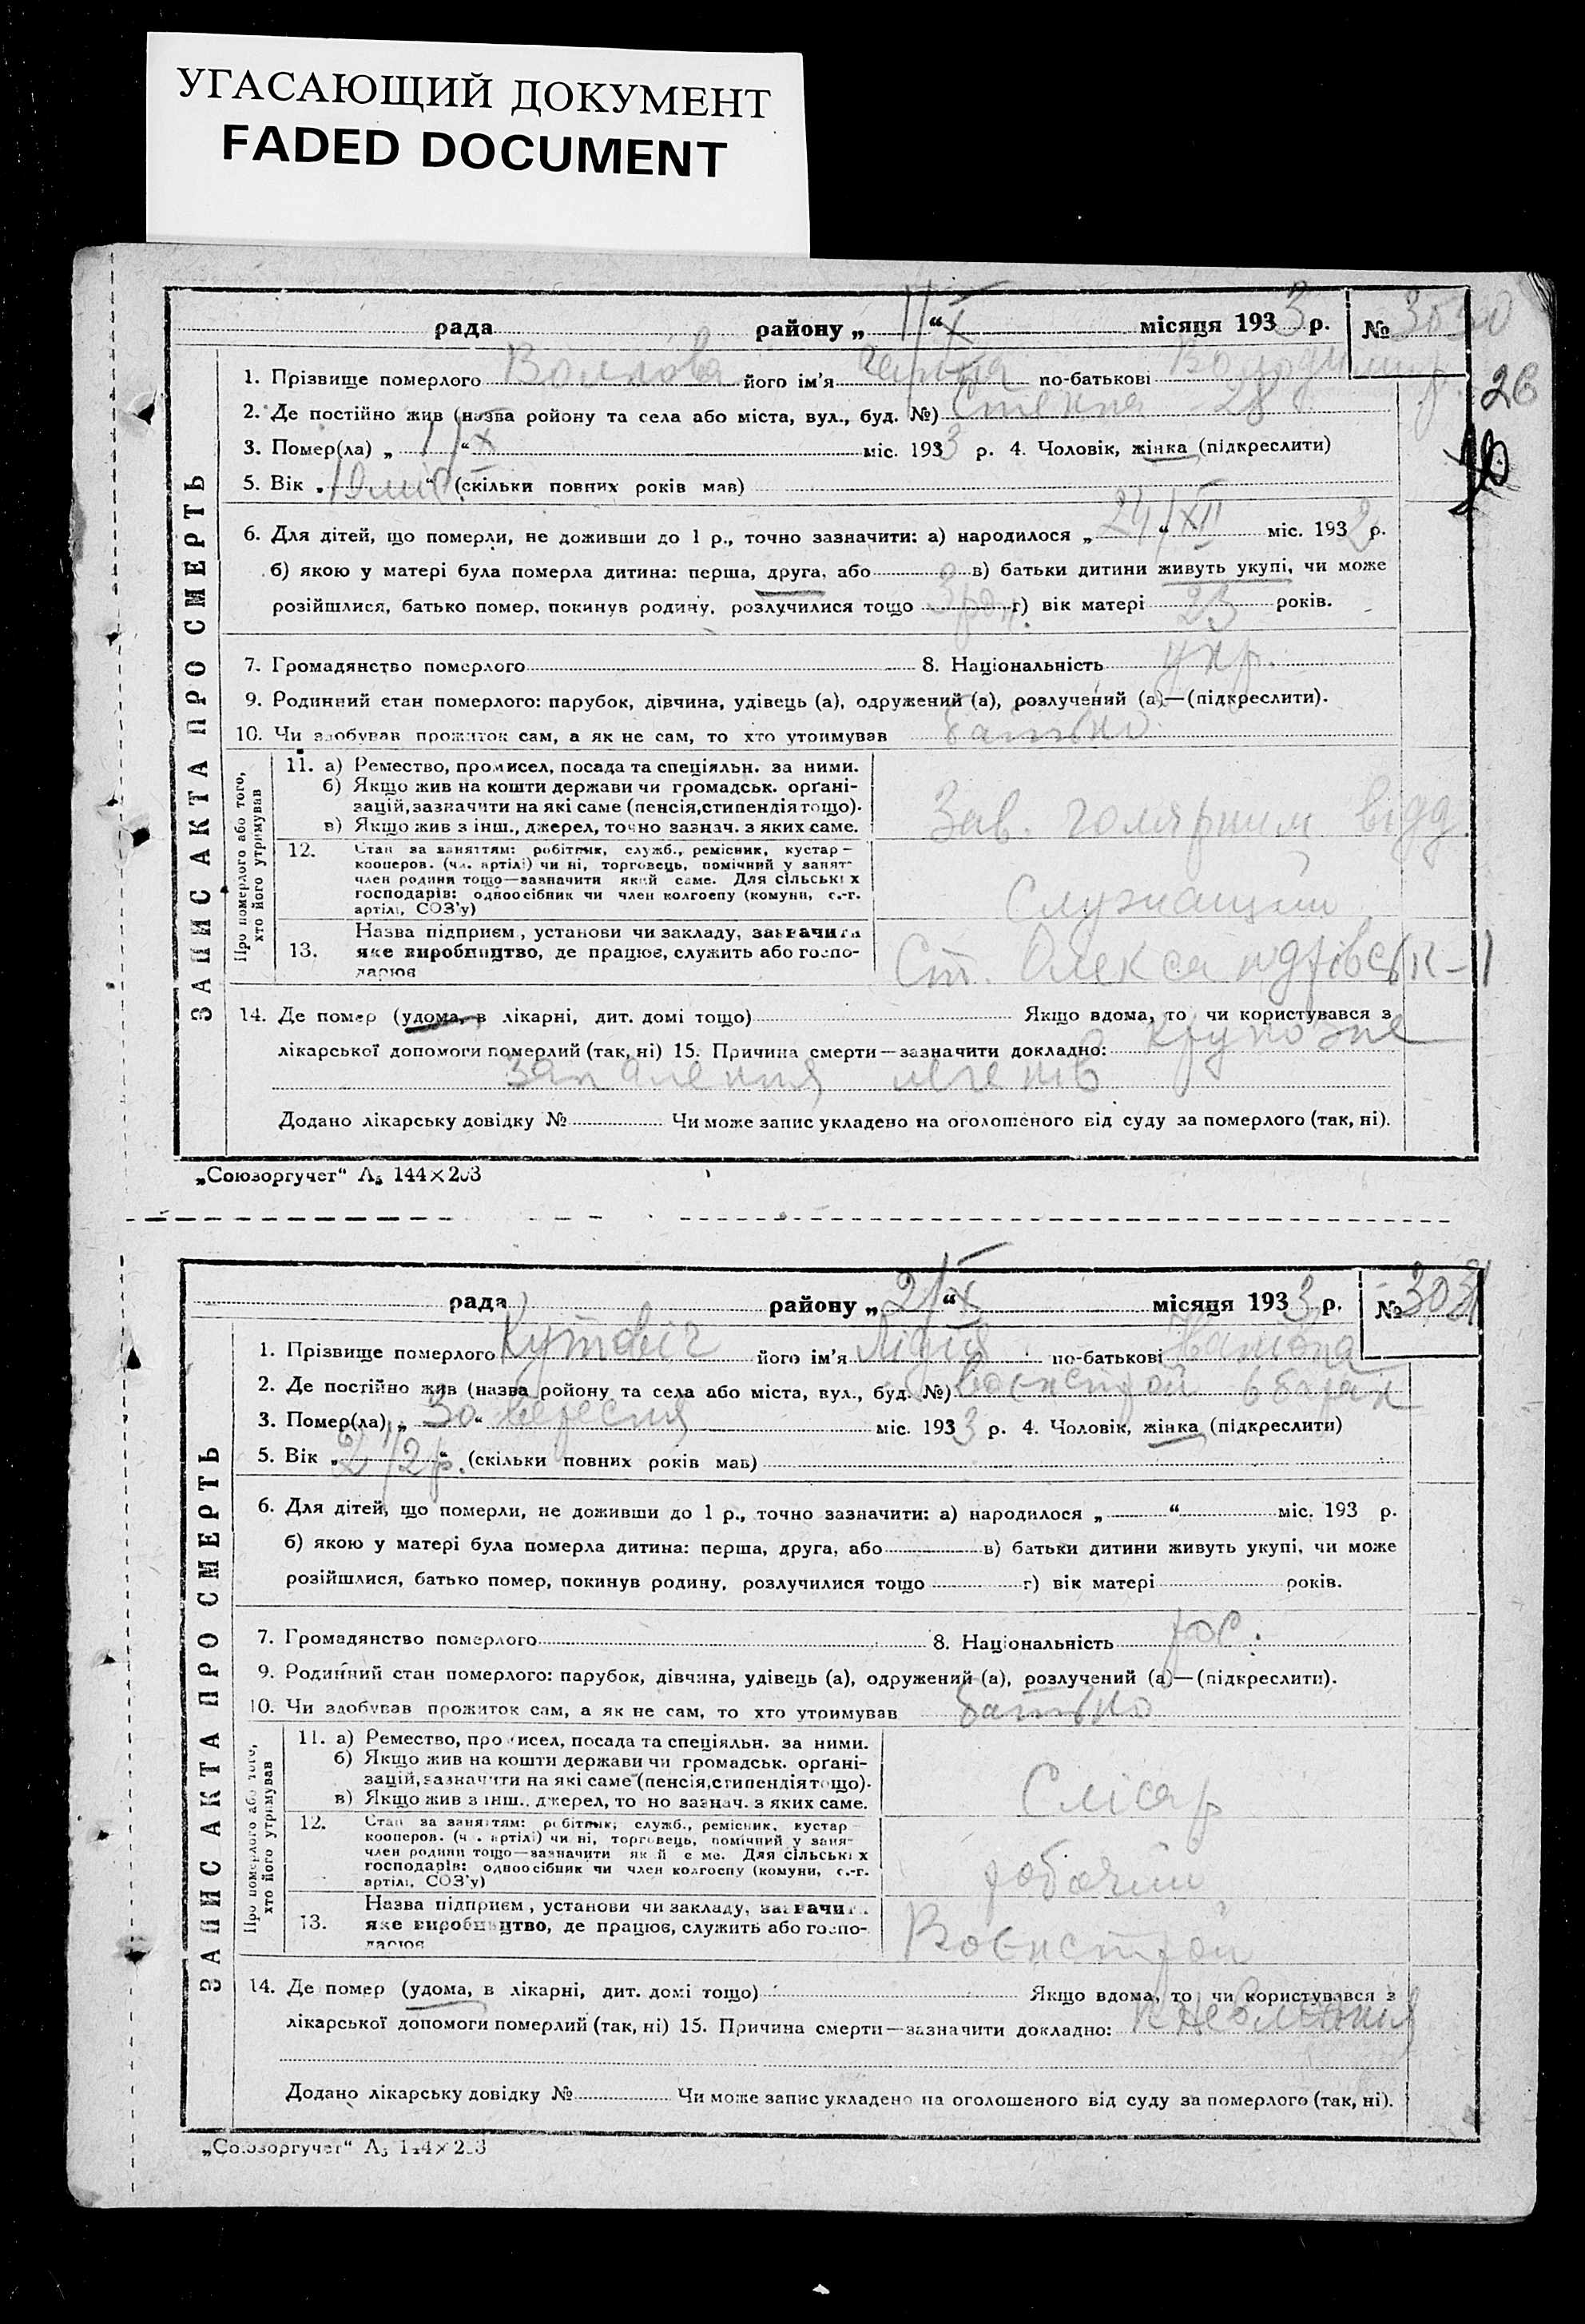 УГАСАЮЩИЙ ДОКУМЕНТ
FADED DOCUMENT
рада району „ 1/X “ місяця 1933 р. № 3030
26
1. Прізвище померлого його ім'я по-батькові Володимир
2. Де постійно жив (назва ройону та села або міста, вул., буд. №) Степна 28
3. Помер(ла) „ 1/X “ міс. 1933 р. 4. Чоловік, жінка (підкреслити)
5. Вік „ 10 міс “ (скільки повних років мав)
6. Для дітей, що померли, не доживши до 1 р., точно зазначити: а) народилося „ 24/XII “ міс. 1932 р.
б) якою у матері була померла дитина: перша, друга, або в) батьки дитини живуть укупі, чи може
розійшлися, батько помер, покинув родину, розлучилися тощо г) вік матері 23 років.
7. Громадянство померлого 8. Національність укр.
9. Родинний стан померлого: парубок, дівчина, удівець (а), одружений (а), розлучений (а)—(підкреслити).
10. Чи здобував прожиток сам, а як не сам, то хто утримував батько
ЗАПИС АКТА ПРО СМЕРТЬ
Про померлого або того, хто його утримував
11. а) Ремество, промисел, посада та спеціяльн. за ними.
б) Якщо жив на кошти держави чи громадськ. організацій, зазначити на які саме (пенсія, стипендія тощо).
в) Якщо жив з інш., джерел, точно зазнач. з яких саме.
Зав. голярним відд.
12. Стан за заняттям: робітник, служб., ремісник, кустар—
кооперов. (чл. артілі) чи ні, торговець, помічний у занят-
член родини тощо—зазначити який саме. Для сільських
господарів: одноосібник чи член колгоспу (комуни, с.-г.
артілі, СОЗ'у)
Служащий
13. Назва підприєм., установи чи закладу, зазначити
яке виробництво, де працює, служить або госпо-
дарює
Ст. Олександрівськ-1
14. Де помер (удома, в лікарні, дит. домі тощо) Якщо вдома, то чи користувався з
лікарської допомоги померлий (так, ні) 15. Причина смерти—зазначити докладно: крупозне
запалення легенів
Додано лікарську довідку № Чи може запис укладено на оголошеного від суду за померлого (так, ні).
„Союзоргучет“ А₅ 144×203
рада району „ 2/X “ місяця 1933 р. № 3031
1. Прізвище померлого Кутевіч його ім'я Лідія по-батькові Івановна
2. Де постійно жив (назва ройону та села або міста, вул., буд. №) Воєнстрой 6 барак
3. Помер(ла) „ 30 “ вересня міс. 1933 р. 4. Чоловік, жінка (підкреслити)
5. Вік „ 2 1/2 р. “ (скільки повних років мав)
6. Для дітей, що померли, не доживши до 1 р., точно зазначити: а) народилося „ “ міс. 193 р.
б) якою у матері була померла дитина: перша, друга, або в) батьки дитини живуть укупі, чи може
розійшлися, батько помер, покинув родину, розлучилися тощо г) вік матері років.
7. Громадянство померлого 8. Національність рос.
9. Родинний стан померлого: парубок, дівчина, удівець (а), одружений (а), розлучений (а)—(підкреслити).
10. Чи здобував прожиток сам, а як не сам, то хто утримував батько
ЗАПИС АКТА ПРО СМЕРТЬ
Про померлого або того, хто його утримував
11. а) Ремество, промисел, посада та спеціяльн. за ними.
б) Якщо жив на кошти держави чи громадськ. організацій, зазначити на які саме (пенсія, стипендія тощо).
в) Якщо жив з інш., джерел, точно зазнач. з яких саме.
Слісар
12. Стан за заняттям: робітник, служб., ремісник, кустар
кооперов. (чл. артілі) чи ні, торговець, помічний у заня-
член родини тощо—зазначити який саме. Для сільських
господарів: одноосібник чи член колгоспу (комуни, с.-г.
артілі, СОЗ'у)
робочий
13. Назва підприєм., установи чи закладу, зазначити
яке виробництво, де працює, служить або госпо-
дарює
Воєнстрой
14. Де помер (удома, в лікарні, дит. домі тощо) Якщо вдома, то чи користувався з
лікарської допомоги померлий (так, ні) 15. Причина смерти—зазначити докладно:
Додано лікарську довідку № Чи може запис укладено на оголошеного від суду за померлого (так, ні).
„Союзоргучет“ А₅ 144×203